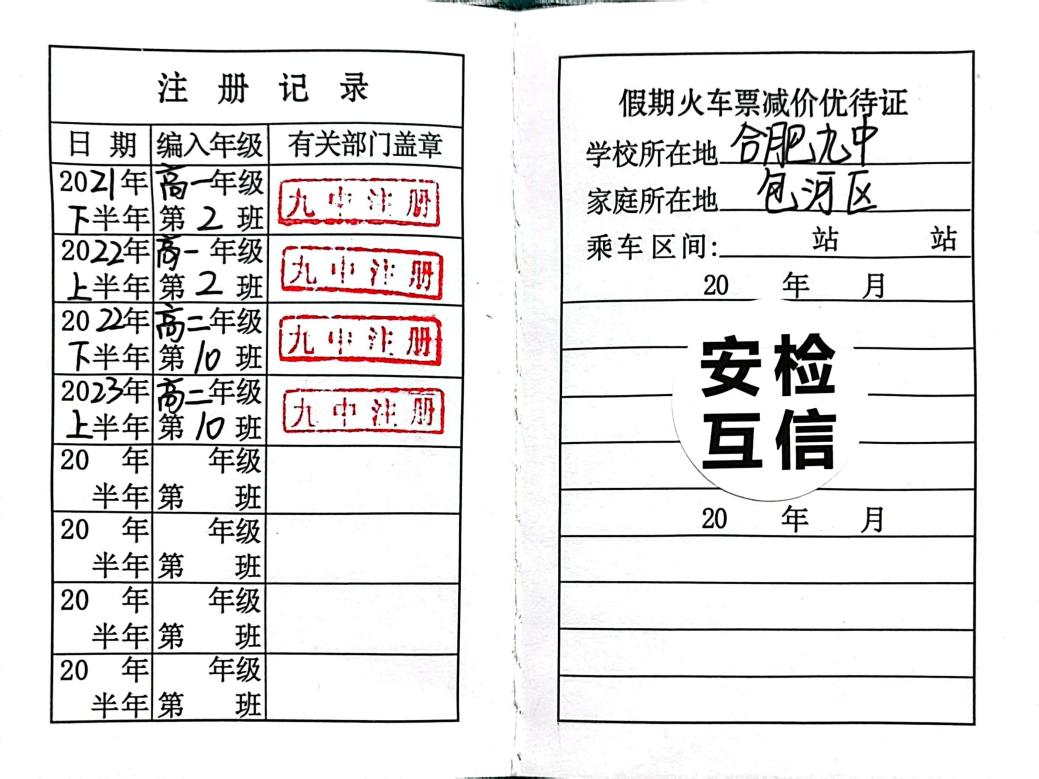 注册记录
日期 编入年级 有关部门盖章
2021年 高一年级 九中注册
下半年 第2班
2022年 高一年级 九中注册
上半年 第2班
2022年 高二年级 九中注册
下半年 第10班
2023年 高二年级 九中注册
上半年 第10班
20 年 年级
半年 第 班
20 年 年级
半年 第 班
20 年 年级
半年 第 班
20 年 年级
半年 第 班
假期火车票减价优待证
学校所在地 合肥九中
家庭所在地 包河区
乘车区间: 站 站
20 年 月
安检
互信
20 年 月